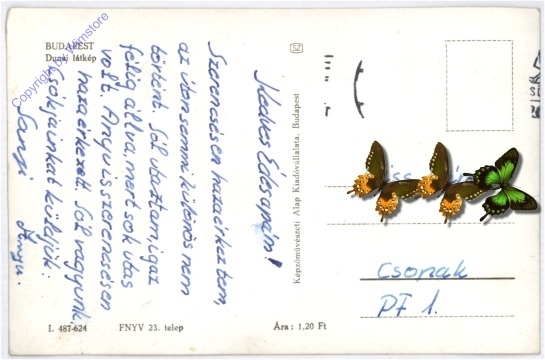 BUDAPEST
Dunai látkép
Copyright by Wimstore
SZ
Kedves Édesapám!
Szerencsésen hazaérkeztem,
az úton semmi különös nem
történt. Jól utaztam, igaz
félig állva, mert sok utas
volt. Anyu is szerencsésen
hazaérkezett. Jól vagyunk.
Csókjainkat küldjük:
Sanyi
Anyu.
Képzőművészeti Alap Kiadóvállalata, Budapest
Csopak
Pf 1.
I. 487-624
FNYV 23. telep
Ára: 1,20 Ft